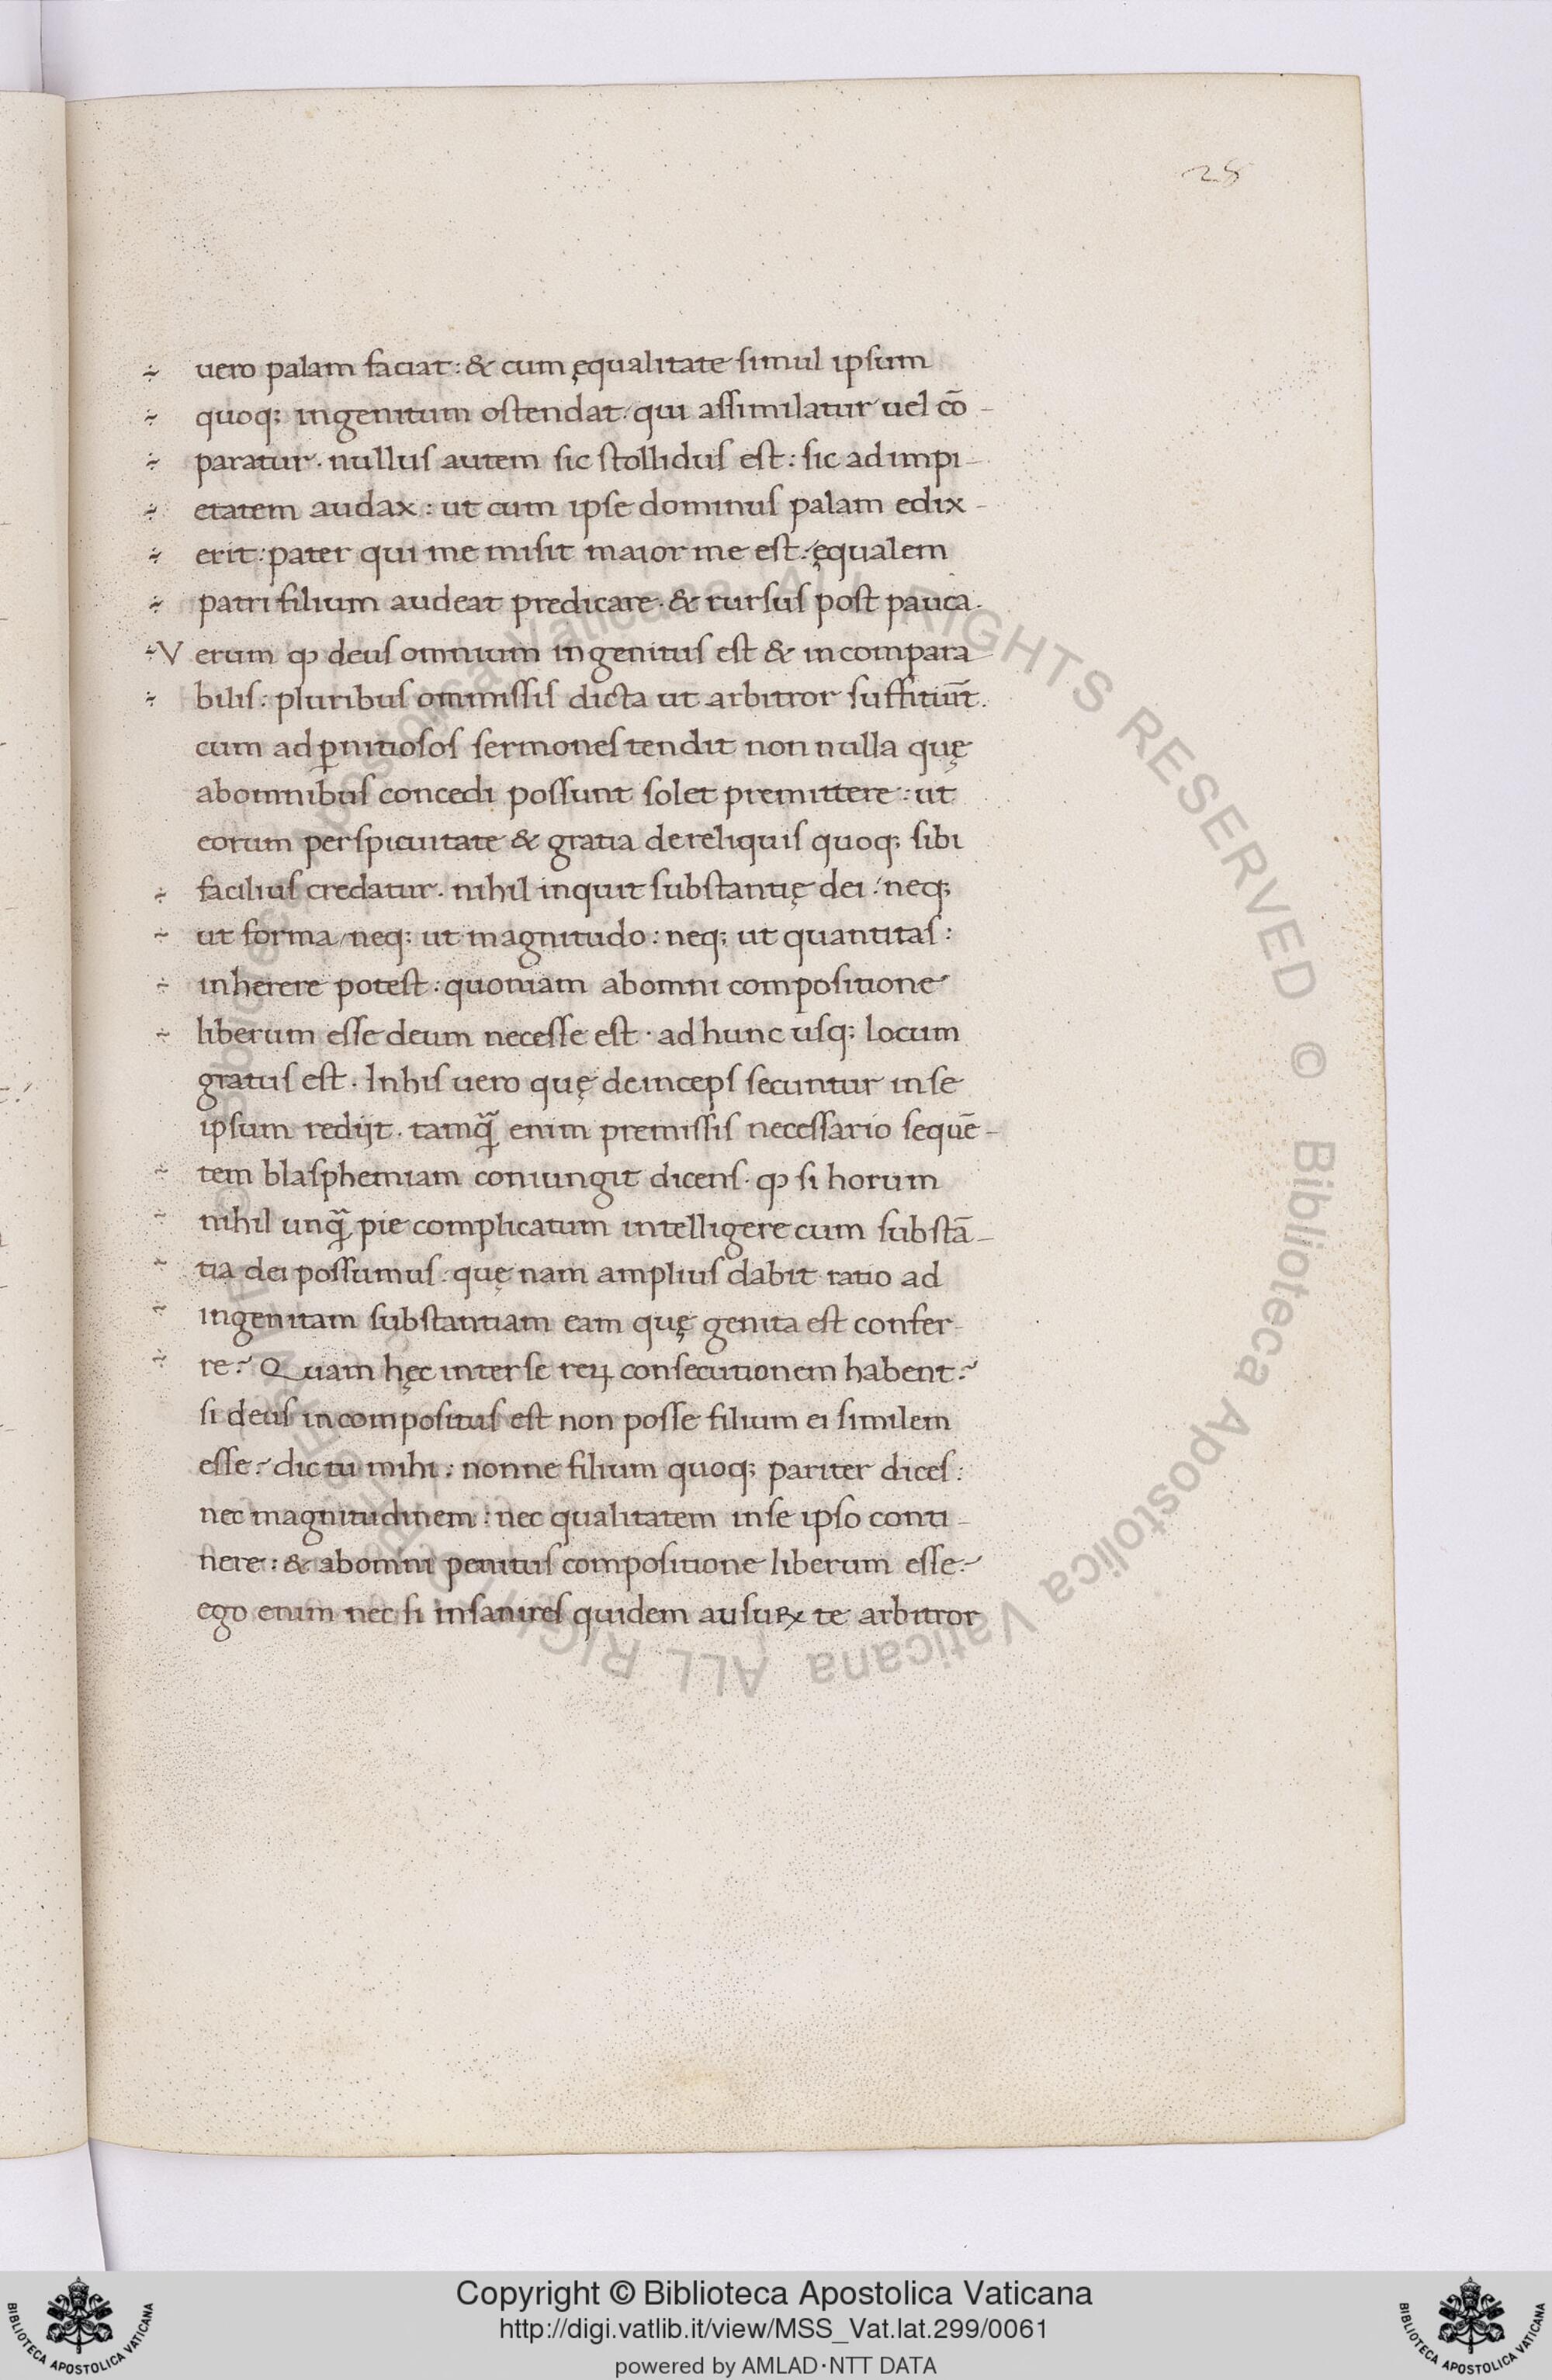 28
uero palam faciat: & cum ęqualitate simul ipsum
quoq; ingenitum ostendat qui assimilatur uel cō-
paratur. nullus autem sic stollidus est: sic ad impi-
etatem audax: ut cum ipse dominus palam edix-
erit: pater qui me misit maior me est. ęqualem
patri filium audeat predicare. & rursus post pauca.
Verum ꝙ deus omnium ingenitus est & incompara
bilis: pluribus ommissis dicta ut arbitror suffitiūt.
cum ad ꝑnitiosos sermones tendit non nulla quę
ab omnibus concedi possunt solet premittere: ut
eorum perspicuitate & gratia de reliquis quoq; sibi
facilius credatur. nihil inquit substantię dei: neq;
ut forma, neq; ut magnitudo: neq; ut quantitas:
inherere potest: quoniam ab omni compositione
liberum esse deum necesse est. ad hunc usq; locum
gratus est. In his uero quę deinceps secuntur in se
ipsum redijt. tamq̄ enim premissis necessario sequē-
tem blasphemiam coniungit dicens. ꝙ si horum
nihil unq̄ pie complicatum intelligere cum substā-
tia dei possumus: quę nam amplius dabit ratio ad
ingenitam substantiam eam quę genita est confer-
re? Quam hęc inter se reꝝ consecutionem habent?
si deus incompositus est non posse filium ei similem
esse? dic tu mihi: nonne filium quoq; pariter dices:
nec magnitudinem: nec qualitatem in se ipso conti-
nere: & ab omni penitus compositione liberum esse?
ego enim nec si insanires quidem ausuꝝ te arbitror
Copyright © Biblioteca Apostolica Vaticana
http://digi.vatlib.it/view/MSS_Vat.lat.299/0061
powered by AMLAD·NTT DATA
BIBLIOTECA APOSTOLICA VATICANA
BIBLIOTECA APOSTOLICA VATICANA
© Biblioteca Apostolica Vaticana ALL RIGHTS RESERVED © Biblioteca Apostolica Vaticana ALL RIGHTS RESERVED